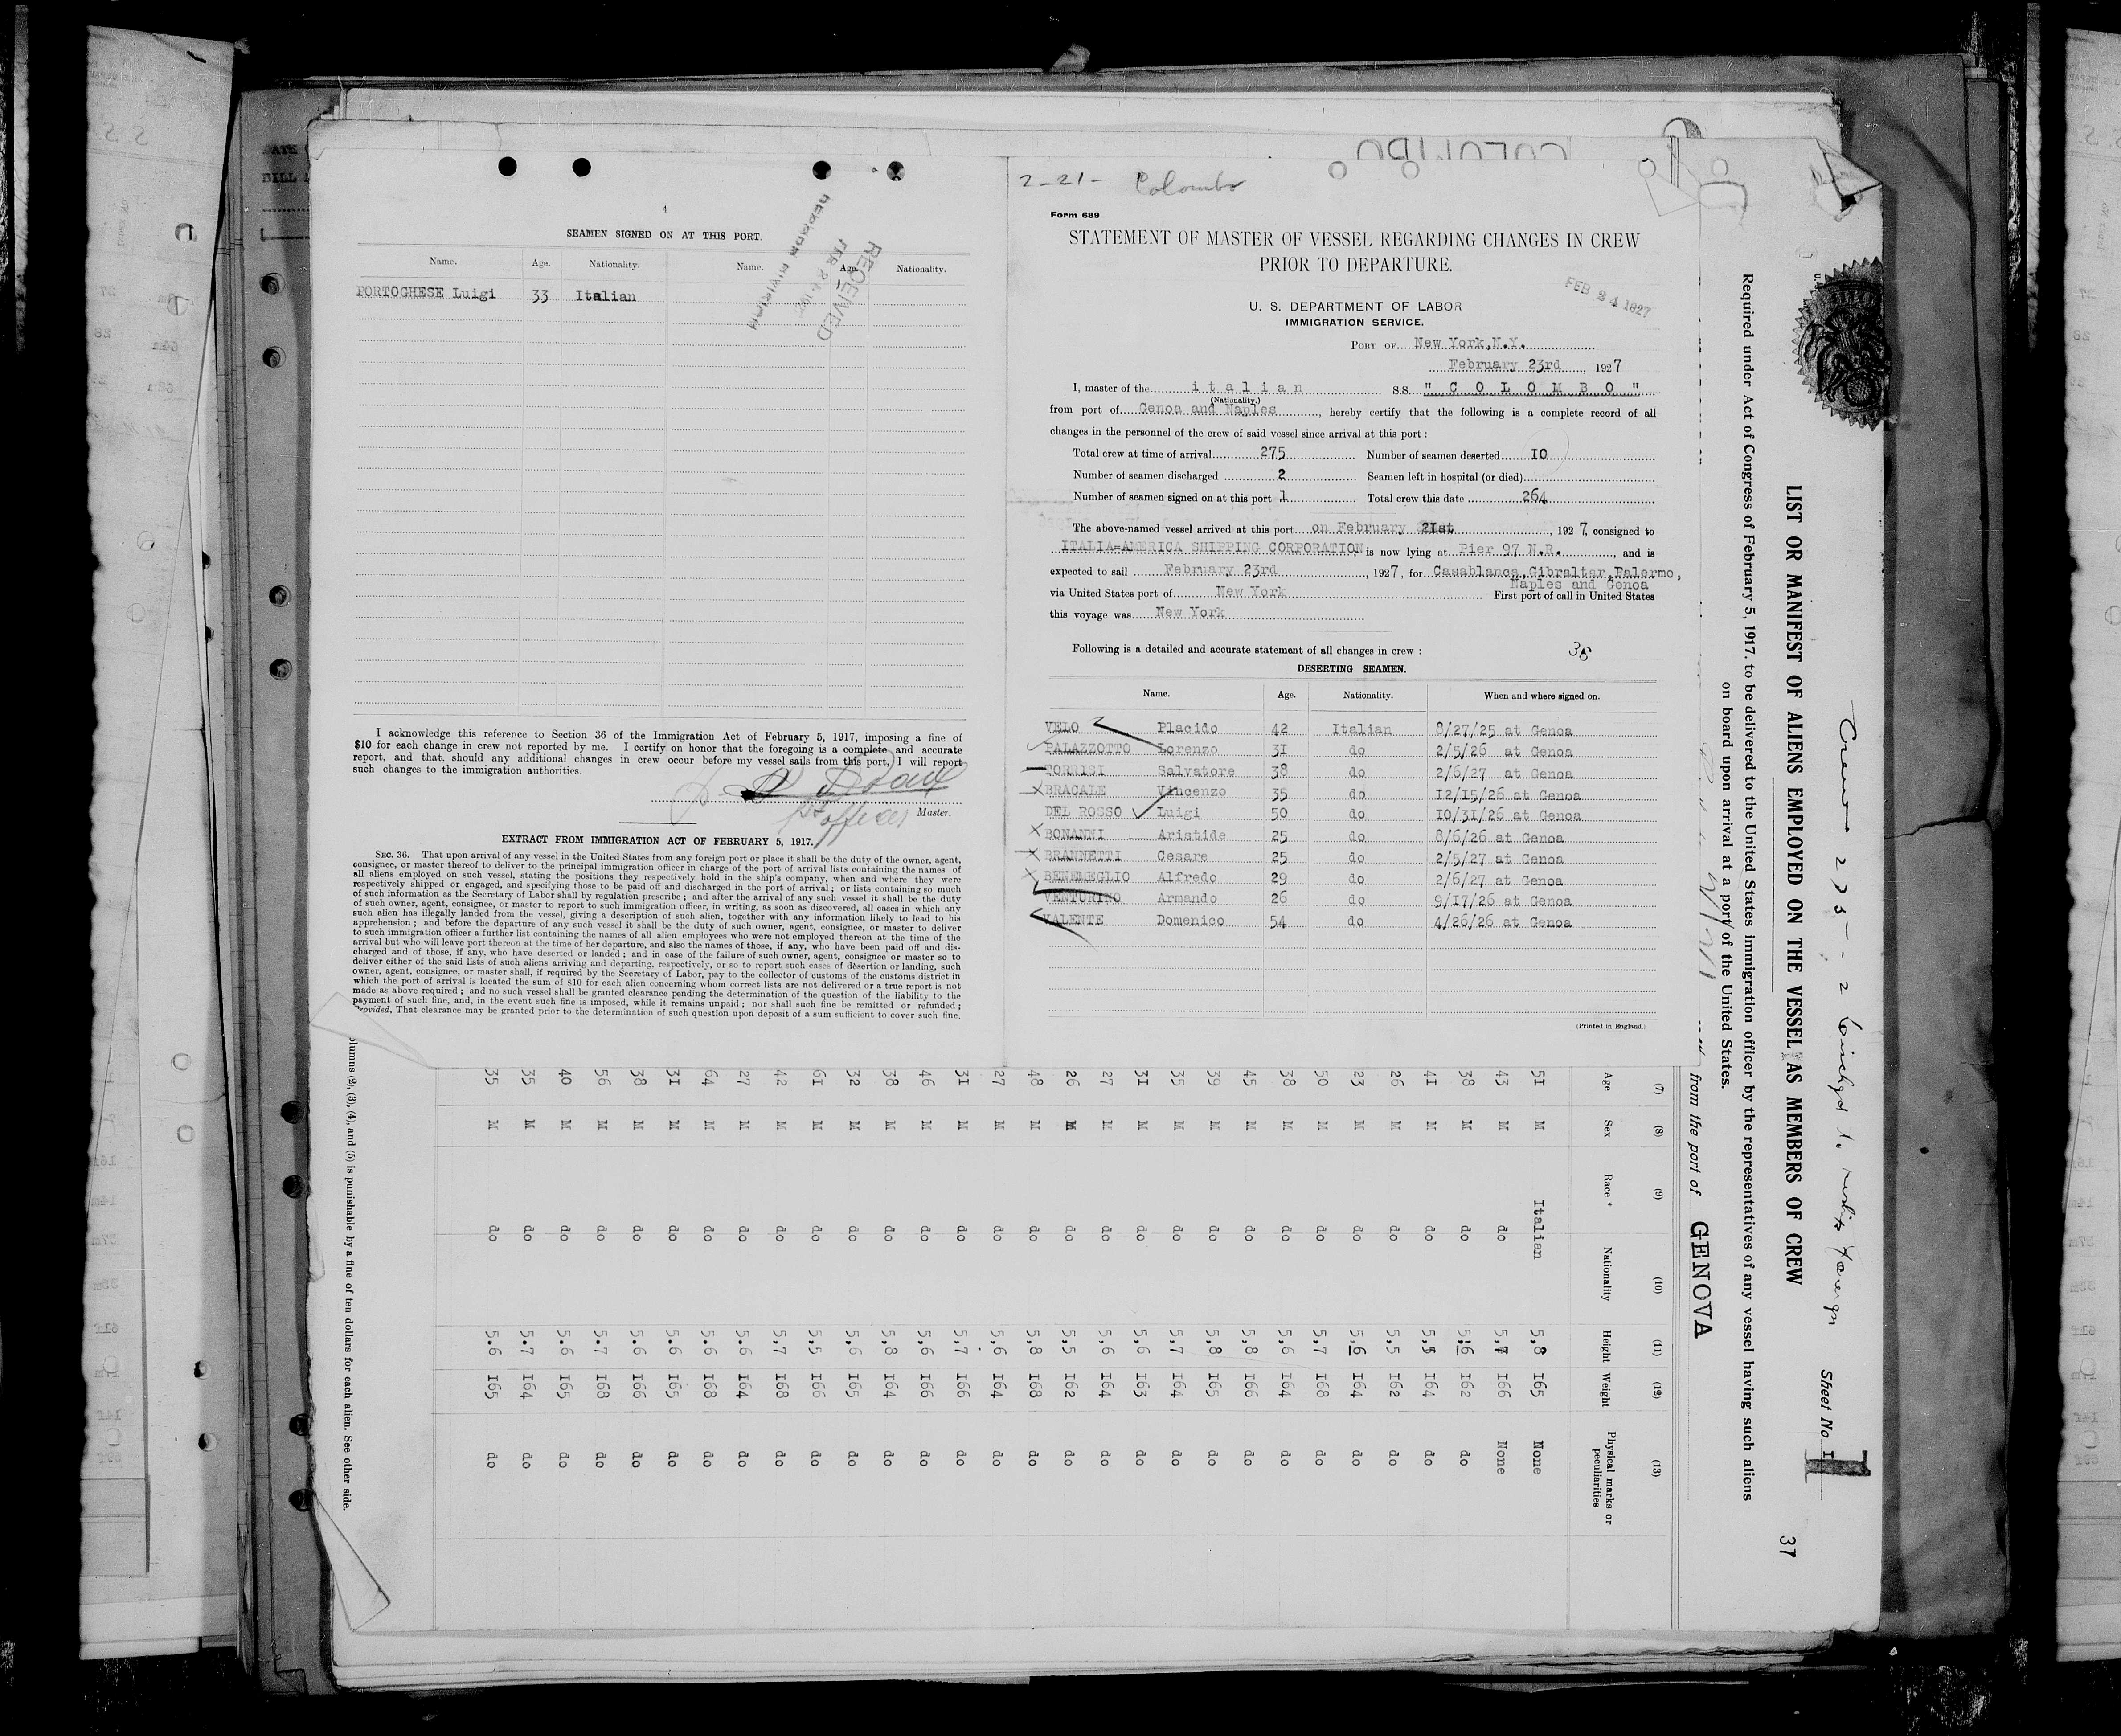 4
SEAMEN SIGNED ON AT THIS PORT.
Name. Age. Nationality. Name. Age. Nationality.
PORTOGHESE Luigi 33 Italian
RECEIVED
I acknowledge this reference to Section 36 of the Immigration Act of February 5, 1917, imposing a fine of
$10 for each change in crew not reported by me. I certify on honor that the foregoing is a complete and accurate
report, and that, should any additional changes in crew occur before my vessel sails from this port, I will report
such changes to the immigration authorities.
Master.
EXTRACT FROM IMMIGRATION ACT OF FEBRUARY 5, 1917.
SEC. 36. That upon arrival of any vessel in the United States from any foreign port or place it shall be the duty of the owner, agent,
consignee, or master thereof to deliver to the principal immigration officer in charge of the port of arrival lists containing the names of
all aliens employed on such vessel, stating the positions they respectively hold in the ship's company, when and where they were
respectively shipped or engaged, and specifying those to be paid off and discharged in the port of arrival; or lists containing so much
of such information as the Secretary of Labor shall by regulation prescribe; and after the arrival of any such vessel it shall be the duty
of such owner, agent, consignee, or master to report to such immigration officer, in writing, as soon as discovered, all cases in which any
such alien has illegally landed from the vessel, giving a description of such alien, together with any information likely to lead to his
apprehension; and before the departure of any such vessel it shall be the duty of such owner, agent, consignee, or master to deliver
to such immigration officer a further list containing the names of all alien employees who were not employed thereon at the time of the
arrival but who will leave port thereon at the time of her departure, and also the names of those, if any, who have been paid off and dis-
charged and of those, if any, who have deserted or landed; and in case of the failure of such owner, agent, consignee or master so to
deliver either of the said lists of such aliens arriving and departing, respectively, or so to report such cases of desertion or landing, such
owner, agent, consignee, or master shall, if required by the Secretary of Labor, pay to the collector of customs of the customs district in
which the port of arrival is located the sum of $10 for each alien concerning whom correct lists are not delivered or a true report is not
made as above required; and no such vessel shall be granted clearance pending the determination of the question of the liability to the
payment of such fine, and, in the event such fine is imposed, while it remains unpaid; nor shall such fine be remitted or refunded;
Provided, That clearance may be granted prior to the determination of such question upon deposit of a sum sufficient to cover such fine.
2-21- Colombo
Form 689
STATEMENT OF MASTER OF VESSEL REGARDING CHANGES IN CREW
PRIOR TO DEPARTURE.
FEB 24 1927
U. S. DEPARTMENT OF LABOR
IMMIGRATION SERVICE.
PORT OF New York,N.Y.
February 23rd, 1927
I, master of the italian S.S. "COLOMBO"
(Nationality.)
from port of Genoa and Naples, hereby certify that the following is a complete record of all
changes in the personnel of the crew of said vessel since arrival at this port:
Total crew at time of arrival 275 Number of seamen deserted 10
Number of seamen discharged 2 Seamen left in hospital (or died)
Number of seamen signed on at this port 1 Total crew this date 264
The above-named vessel arrived at this port on February 21st, 1927, consigned to
ITALIA-AMERICA SHIPPING CORPORATION is now lying at Pier 97 N.R., and is
expected to sail February 23rd, 1927, for Casablanca,Gibraltar,Palermo,
Naples and Genoa
via United States port of New York First port of call in United States
this voyage was New York
Following is a detailed and accurate statement of all changes in crew: 38
DESERTING SEAMEN.
Name. Age. Nationality. When and where signed on.
VELO Placido 42 Italian 8/27/25 at Genoa
PALAZZOTTO Lorenzo 31 do 2/5/26 at Genoa
TORRISI Salvatore 38 do 2/6/27 at Genoa
BRACALE Vincenzo 35 do 12/15/26 at Genoa
DEL ROSSO Luigi 50 do 10/31/26 at Genoa
BONANNI Aristide 25 do 8/6/26 at Genoa
BRANNETTI Cesare 25 do 2/5/27 at Genoa
BENEMEGLIO Alfredo 29 do 2/6/27 at Genoa
VENTURINO Armando 26 do 9/17/26 at Genoa
VALENTE Domenico 54 do 4/26/26 at Genoa
(Printed in England.)
Sheet No I
37
LIST OR MANIFEST OF ALIENS EMPLOYED ON THE VESSEL AS MEMBERS OF CREW
Required under Act of Congress of February 5, 1917, to be delivered to the United States immigration officer by the representatives of any vessel having such aliens
on board upon arrival at a port of the United States.
from the port of GENOVA
(7) (8) (9) (10) (11) (12) (13)
Age Sex Race * Nationality Height Weight Physical marks or peculiarities
51 M Italian 5,8 165 None
43 M do 5,7 166 None
38 M do 5,6 162 do
41 M do 5,5 164 do
26 M do 5,5 162 do
23 M do 5,6 164 do
50 M do 5,7 168 do
38 M do 5,6 164 do
45 M do 5,8 166 do
39 M do 5,8 165 do
35 M do 5,7 164 do
31 M do 5,6 163 do
27 M do 5,6 164 do
26 M do 5,5 162 do
48 M do 5,8 168 do
27 M do 5,6 164 do
31 M do 5,7 166 do
46 M do 5,6 166 do
38 M do 5,8 164 do
32 M do 5,6 165 do
61 M do 5,5 166 do
42 M do 5,7 168 do
27 M do 5.6 164 do
64 M do 5.6 168 do
31 M do 5.6 165 do
38 M do 5.6 166 do
56 M do 5.7 168 do
40 M do 5.6 165 do
35 M do 5.7 164 do
35 M do 5.6 165 do
(2), (3), (4), and (5) is punishable by a fine of ten dollars for each alien. See other side.